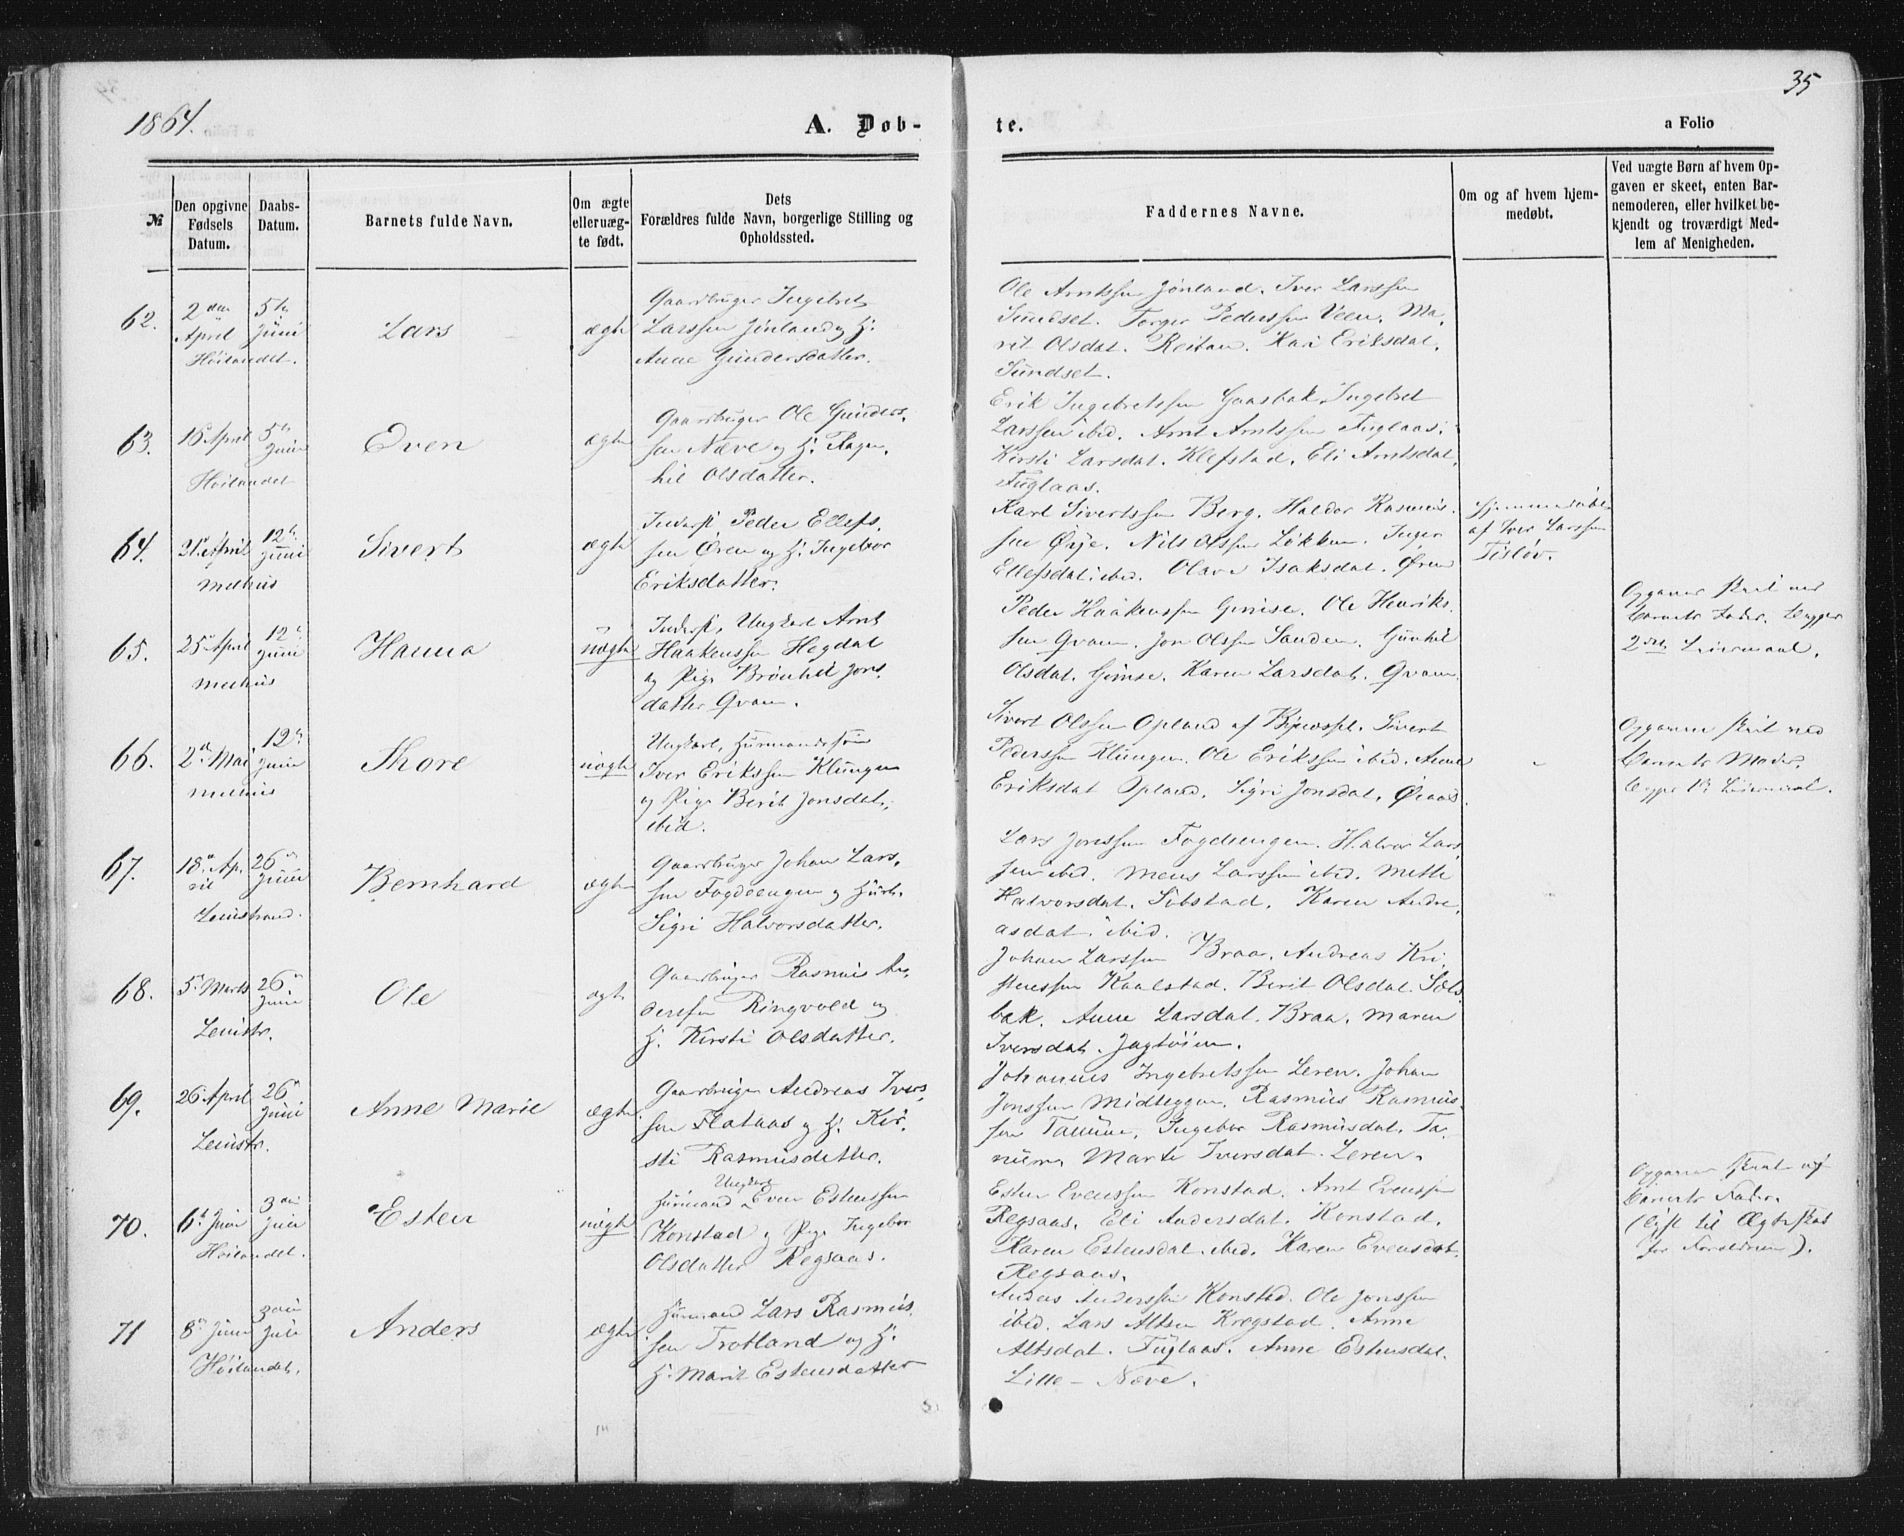 1864.
A. Døb-
te.
35
a Folio
№
Den opgivne
Fødsels
Datum.
Daabs-
Datum.
Barnets fulde Navn.
Om ægte
eller uæg-
te født.
Dets
Forældres fulde Navn, borgerlige Stilling og
Opholdssted.
Faddernes Navne.
Om og af hvem hjem-
medøbt.
Ved uægte Børn af hvem Op-
gaven er skeet, enten Bar-
nemoderen, eller hvilket be-
kjendt og troværdigt Med-
lem af Menigheden.
62.
2den
April
Høilandet.
5te
Juni
Lars
ægte
Gaardbruger Ingebret
Larssen Jønland og H.
Anne Gundersdatter.
Ole Arntssen Jønland. Iver Larssen
Sundset. Torger Pederssen Veen. Ma-
rit Olsdat. Reitan. Kari Eriksdat.
Sundset.
63.
April
Høilandet
5te
Juni
Even
ægte
Gaardbruger Ole Gunders-
sen Næve og H. Ragn-
hil Olsdatter.
Erik Ingebretssen Gaasbak. Ingebret
Larssen ibid. Arnt Arntssen Fuglaas.
Kirsti Larsdat. Klefstad. Eli Arntsdat.
Fuglaas.
64.
21 April
Melhus
12te
Juni
Sivert
ægte
Inderst Peder Ellefs.
sen Øren og H. Ingebor
Eriksdatter.
Karl Sivertssen Berg. Haldor Rasmus-
sen Øye. Nils Olssen Løkken. Inger
Ellefsdat. ibid. Olava Isaksdat. Øren
Hjemmedøbt
af Iver Larssen
65.
25 April
Melhus
12te
Juni
Hanna
uægte
Inderst, Ungkarl Arnt
Haakenssen Hegdal
og Pige Brønhil Jons-
datter Qvam.
Peder Haakenssen Gimse. Ole Henriks-
sen Qvam. Jon Olssen Sanden. Gunhil
Olsdat. Gimse. Karen Larsdat. Qvam.
Opgaven skeet ved
Barnets Fader. Begges
2det Leiermaal.
66.
2den Mai
Melhus
12te
Juni
Thore
uægte
Ungkarl, Husmandssøn
Iver Erikssen Klungen
og Pige Berit Jonsdat.
ibid.
Sivert Olssen Opland af Bynespl. Sivert
Pederssen Klungen. Ole Erikssen ibid. Anne
Eriksdat Opland. Sigri Jonsdat. Øiaas.
Opgaven skeet ved
Barnets Moder.
Begges 1te Leiermaal.
67.
18de Ap-
ril
Leinstrand.
26de
Juni
Bernhard
ægte
Gaardbruger Johan Lars-
sen Fogdeengen og Hust.
Sigri Halvorsdatter.
Lars Jonssen Fogdeengen. Halvor Lars-
sen ibid. Mens Larssen ibid. Mette
Halvorsdat. Søbstad. Karen Andre-
asdat. ibid.
68.
5 Marts
Leinstr.
26de
Juni
Ole
ægte
Gaardbruger Rasmus An-
dersen Ringvold og
H. Kirsti Olsdatter.
Johan Larssen Braa. Andreas Kri-
stenssen Kaalstad. Berit Olsdat. Sols-
bak. Anne Larsdat. Braa. Maren
Iversdat. Jagtøien.
69.
26 April
Leinstr.
26de
Juni
Anne Marie
ægte
Gaardbruger Andreas Ivers-
sen Flataas og H. Kir-
sti Rasmusdatter.
Johannes Ingebretssen Leren. Johan
Jonssen Midteggen. Rasmus Rasmus-
sen Tanem. Ingebor Rasmusdat. Ta-
nem. Marte Iversdat. Leren.
70.
6te Juni
Høilandet.
3die
Juli
Esten
uægte
Ungkarl
Husmand Even Estenssen
Konstad og Pige Ingebor
Olsdatter Regsaas.
Esten Evenssen Konstad. Arnt Evenssen
Regsaas. Eli Andersdat. Konstad.
Karen Estensdat. ibid. Karen Evensdat.
Regsaas.
Opgaven skeet af
Barnets Fader.
(Lyst til Ægteskab
for Forældrene).
71
8de Juni
Høilandet.
3die
Juli
Anders
ægte
Husmand Lars Rasmus-
sen Trotland og H.
H. Marit Estensdatter
Anders Anderssen Konstad. Ole Jonssen
ibid. Lars Altsen Kregstad. Anne
Altsdat. Fuglaas. Anne Estensdat.
Lille-Næve.